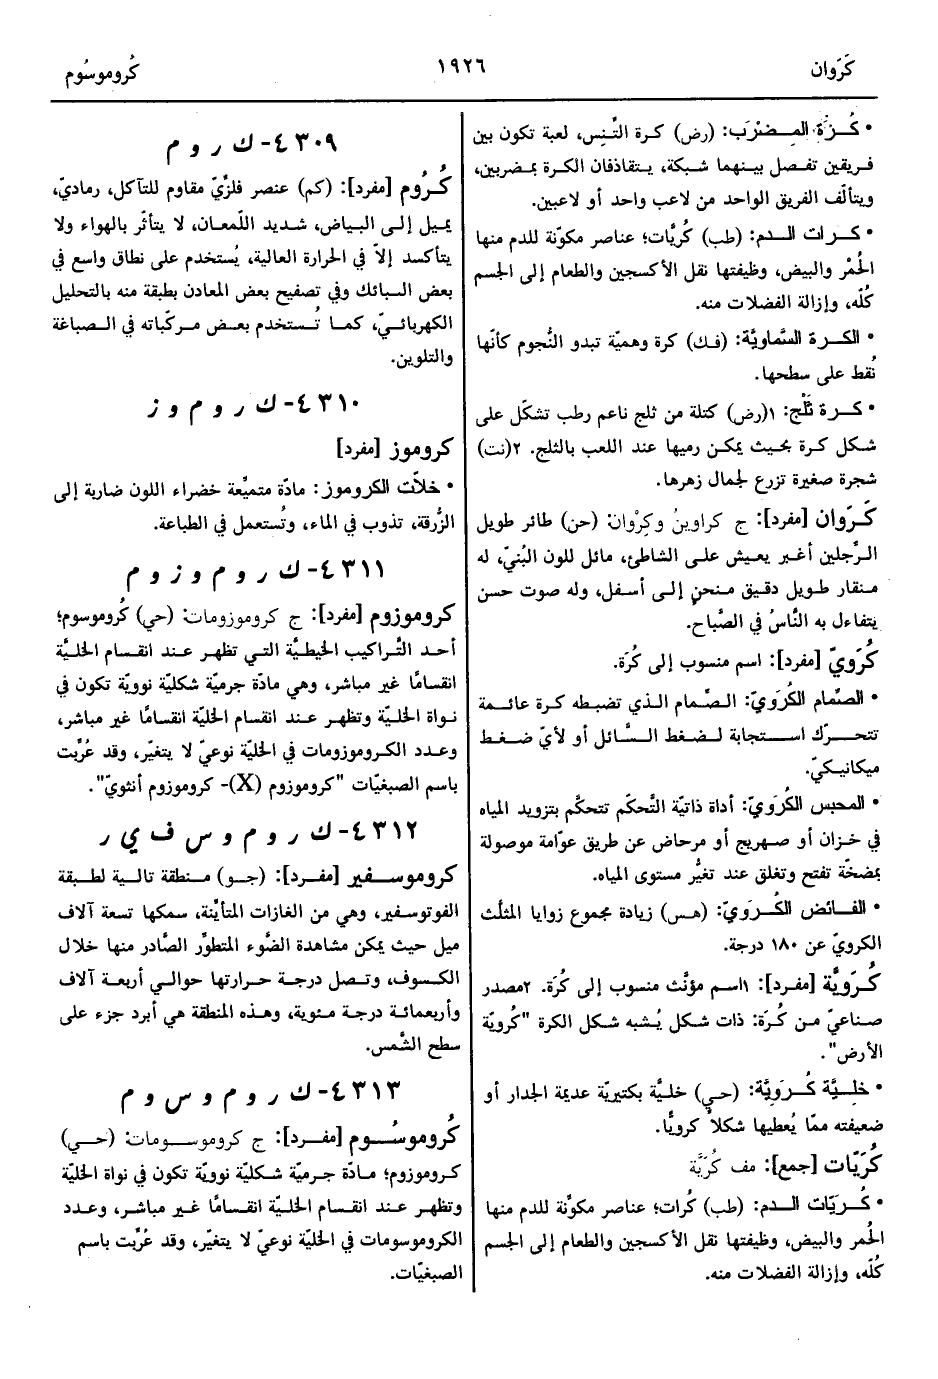 كَرَوان
١٩٢٦
كُروموسُوم
• كُرَة المِضْرَب: (رض) كرة التَّنِس، لعبة تكون بين
فريقين تفصل بينهما شبكة، يتقاذفان الكرة بمضربين،
ويتألّف الفريق الواحد من لاعب واحد أو لاعبين.
• كرات الدم: (طب) كُريَّات؛ عناصر مكوّنة للدم منها
الحُمْر والبيض، وظيفتها نقل الأكسجين والطعام إلى الجسم
كُلّه، وإزالة الفضلات منه.
• الكرة السَّماويَّة: (فك) كرة وهميّة تبدو النُّجوم كأنّها
نُقط على سطحها.
• كرة ثَلْج: ١(رض) كتلة من ثلج ناعم رطب تشكّل على
شكل كرة بحيث يمكن رميها عند اللعب بالثلج. ٢(نت)
شجرة صغيرة تزرع لجمال زهرها.
كَرَوان [مفرد]: ج كراوينُ وكِرْوان: (حن) طائر طويل
الرِّجلين أغبر يعيش على الشاطئ، مائل للون البُنيّ، له
منقار طويل دقيق منحنٍ إلى أسفل، وله صوت حسن
يتفاءل به النَّاسُ في الصَّباح.
كُرَويّ [مفرد]: اسم منسوب إلى كُرَة.
• الصِّمام الكُرَويّ: الصِّمام الذي تضبطه كرة عائمة
تتحرّك استجابة لضغط السَّائل أو لأيّ ضغط
ميكانيكيّ.
• المحبس الكُرَويّ: أداة ذاتيّة التَّحكّم تتحكّم بتزويد المياه
في خزان أو صهريج أو مرحاض عن طريق عوّامة موصولة
بمضخّة تفتح وتغلق عند تغيُّر مستوى المياه.
• الفائض الكُرَويّ: (هس) زيادة مجموع زوايا المثلّث
الكرويّ عن ١٨٠ درجة.
كُرَويَّة [مفرد]: ١اسم مؤنّث منسوب إلى كُرَة. ٢مصدر
صناعيّ من كُرَة: ذات شكل يُشبه شكل الكرة "كُرويّة
الأرض".
• خليَّة كُرَويَّة: (حي) خليَّة بكتيريّة عديمة الجدار أو
ضعيفته ممّا يُعطيها شكلاً كرويًّا.
كُرَيّات [جمع]: مف كُرَيَّة
• كُرَيَّات الدم: (طب) كُرات؛ عناصر مكوِّنة للدم منها
الحُمر والبيض، وظيفتها نقل الأكسجين والطعام إلى الجسم
كُلّه، وإزالة الفضلات منه.
٤٣٠٩- ك ر و م
كُرُوم [مفرد]: (كم) عنصر فلزّيّ مقاوم للتآكل، رماديّ،
يميل إلى البياض، شديد اللّمعان، لا يتأثّر بالهواء ولا
يتأكسد إلاّ في الحرارة العالية، يُستخدم على نطاق واسع في
بعض السبائك وفي تصفيح بعض المعادن بطبقة منه بالتحليل
الكهربائيّ، كما تُستخدم بعض مركّباته في الصباغة
والتلوين.
٤٣١٠- ك ر و م و ز
كروموز [مفرد]
• خلاّت الكروموز: مادّة متميّعة خضراء اللون ضاربة إلى
الزُّرقة، تذوب في الماء، وتُستعمل في الطباعة.
٤٣١١- ك ر و م و ز و م
كروموزوم [مفرد]: ج كروموزومات: (حي) كُروموسوم؛
أحد التَّراكيب الخيطيَّة التي تظهر عند انقسام الخليَّة
انقسامًا غير مباشر، وهي مادّة جرميَّة شكليّة نوويّة تكون في
نواة الخليَّة وتظهر عند انقسام الخليّة انقسامًا غير مباشر،
وعدد الكروموزومات في الخليّة نوعيّ لا يتغيّر، وقد عُرِّبت
باسم الصبغيّات "كروموزوم (X)- كروموزوم أنثويّ".
٤٣١٢- ك ر و م و س ف ي ر
كروموسفير [مفرد]: (جو) منطقة تالية لطبقة
الفوتوسفير، وهي من الغازات المتأيّنة، سمكها تسعة آلاف
ميل حيث يمكن مشاهدة الضَّوء المتطوِّر الصَّادر منها خلال
الكسوف، وتصل درجة حرارتها حوالي أربعة آلاف
وأربعمائة درجة مئوية، وهذه المنطقة هي أبرد جزء على
سطح الشَّمس.
٤٣١٣- ك ر و م و س و م
كُروموسُوم [مفرد]: ج كروموسومات: (حي)
كروموزوم؛ مادّة جرميّة شكليّة نوويّة تكون في نواة الخليّة
وتظهر عند انقسام الخليّة انقسامًا غير مباشر، وعدد
الكروموسومات في الخليّة نوعيّ لا يتغيّر، وقد عُرِّبت باسم
الصبغيّات.